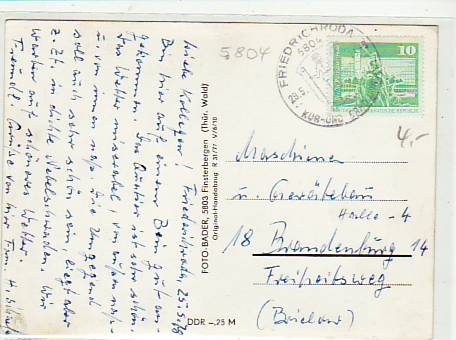 5804
FRIEDRICHRODA
5804
KUR- UND
10
4,-
Liebe Kollegen! Friedrichroda, 25.5.78
Bin hier auf einem Berg gut an-
gekommen. Das Quartier ist sehr schön.
Das Wetter miserabel, von außen naß
u. von innen naß. Die Umgegend
soll auch sehr schön sein, liegt aber
z. Zt. in dichte Nebelschwaden. Wir
warten auf schöneres Wetter.
Freundl. Grüße von hier Fam. H.
FOTO-BADER, 5803 Finsterbergen (Thür. Wald)
Original-Handabzug R 31/71 V/6/10
DDR -,25 M
Maschinen
u. Gerätebau
Halle - 4
18 Brandenburg 14
Freiheitsweg
(Brielow)